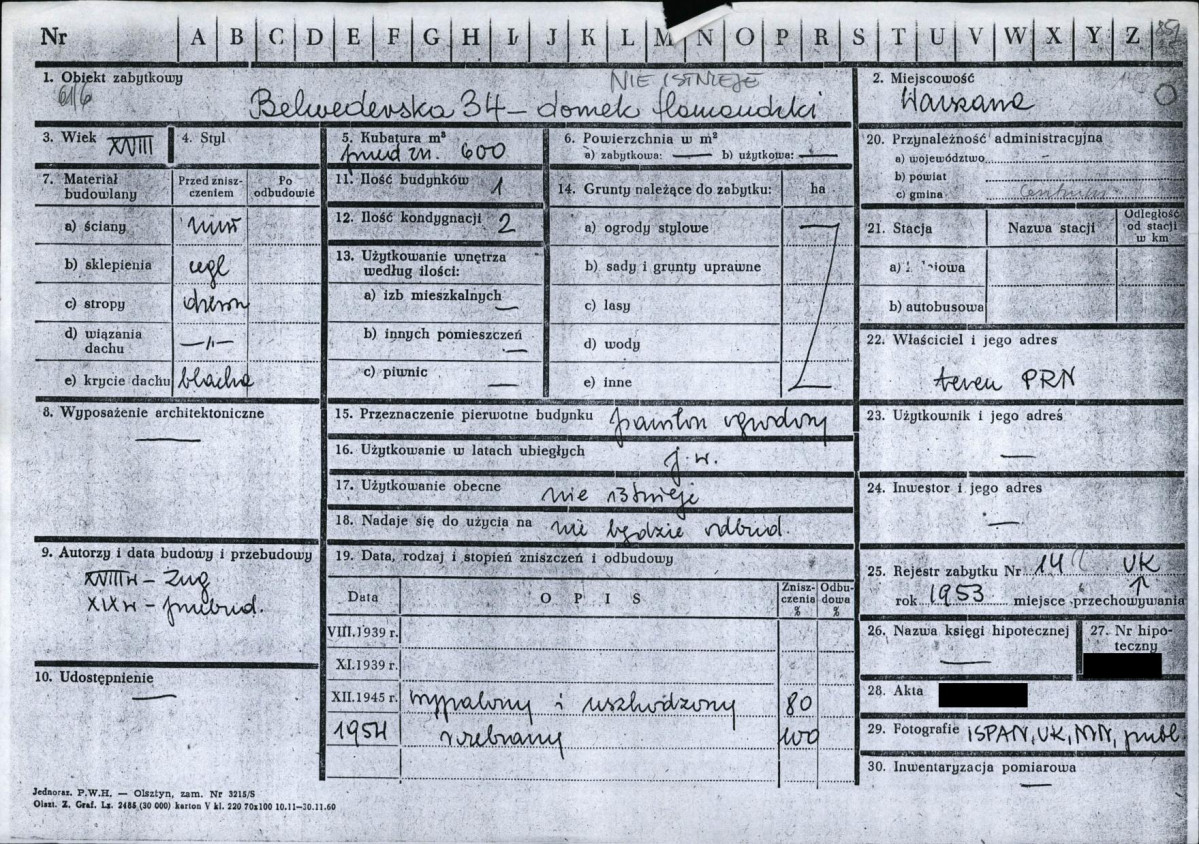 Nr A B C D E F G H I J K L M N O P R S T U V W X Y Z
1. Obiekt zabytkowy
NIE ISTNIEJE
Belwederska 34 – domek flamandzki
2. Miejscowość
Warszawa
3. Wiek XVIII
4. Styl
5. Kubatura m³
600
6. Powierzchnia w m²
a) zabytkowa: — b) użytkowa: —
20. Przynależność administracyjna
a) województwo
b) powiat
c) gmina
7. Materiał budowlany
Przed zniszczeniem
Po odbudowie
a) ściany mur
b) sklepienia cegl
c) stropy drewn
d) wiązania dachu —„—
e) krycie dachu blacha
11. Ilość budynków 1
12. Ilość kondygnacji 2
13. Użytkowanie wnętrza według ilości:
a) izb mieszkalnych —
b) innych pomieszczeń —
c) piwnic —
14. Grunty należące do zabytku: ha
a) ogrody stylowe
b) sady i grunty uprawne
c) lasy
d) wody
e) inne
21. Stacja
Nazwa stacji
Odległość od stacji w km
b) autobusowa
22. Właściciel i jego adres
teren PRN
8. Wyposażenie architektoniczne
—
15. Przeznaczenie pierwotne budynku pawilon ogrodowy
16. Użytkowanie w latach ubiegłych j.w.
17. Użytkowanie obecne nie istnieje
18. Nadaje się do użycia na nie będzie odbud.
23. Użytkownik i jego adres
—
24. Inwestor i jego adres
—
9. Autorzy i data budowy i przebudowy
XVIII w – Zug
XIX w – przebud.
19. Data, rodzaj i stopień zniszczeń i odbudowy
Data
OPIS
Zniszczenia %
Odbudowa %
VIII.1939 r.
XI.1939 r.
XII.1945 r. wypalony i uszkodzony 80
1954 rozebrany 100
25. Rejestr zabytku Nr UK
rok 1953 miejsce przechowywania
26. Nazwa księgi hipotecznej
—
27. Nr hipoteczny
28. Akta
29. Fotografie ISPAN, UK, MN, publ
30. Inwentaryzacja pomiarowa
—
10. Udostępnienie
—
Jednoraz. P.W.H. — Olsztyn, zam. Nr 3215/S
Olszt. Z. Graf. Lz. 2485 (30 000) karton V kl. 220 70x100 10.11—30.11.60